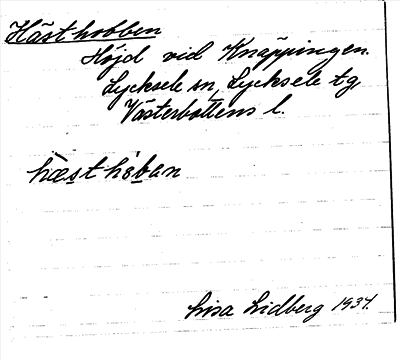 Hästhobben
Höjd vid Knäppingen.
Lycksele sn, Lycksele tg,
Västerbottens l.
hæst hɵbən
Lisa Lidberg 1934.